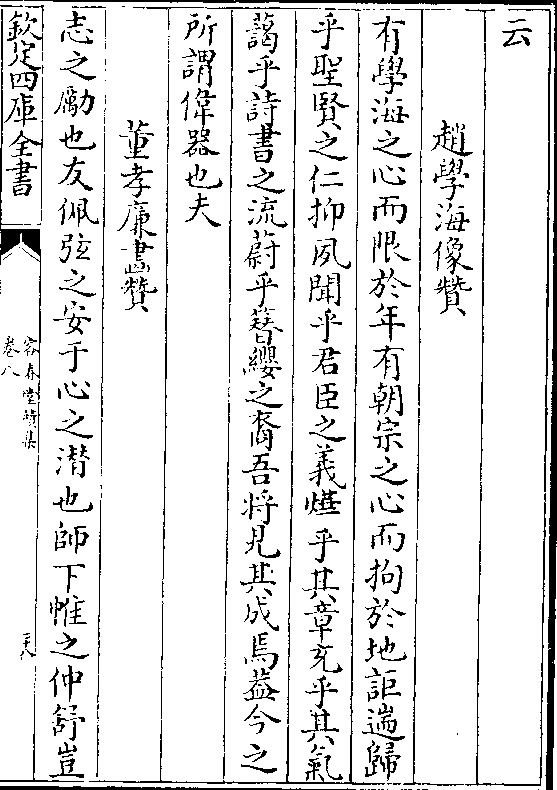 云
趙學海像贊
有學海之心而限於年有朝宗之心而拘於地詎遄歸
乎聖賢之仁抑夙聞乎君臣之義燁乎其章充乎其氣
藹乎詩書之流蔚乎簪纓之裔吾將見其成焉葢今之
所謂偉器也夫
董孝廉畫贊
志之勵也友佩弦之安于心之潛也師下帷之仲舒豈
欽定四庫全書
容春堂續集
卷八